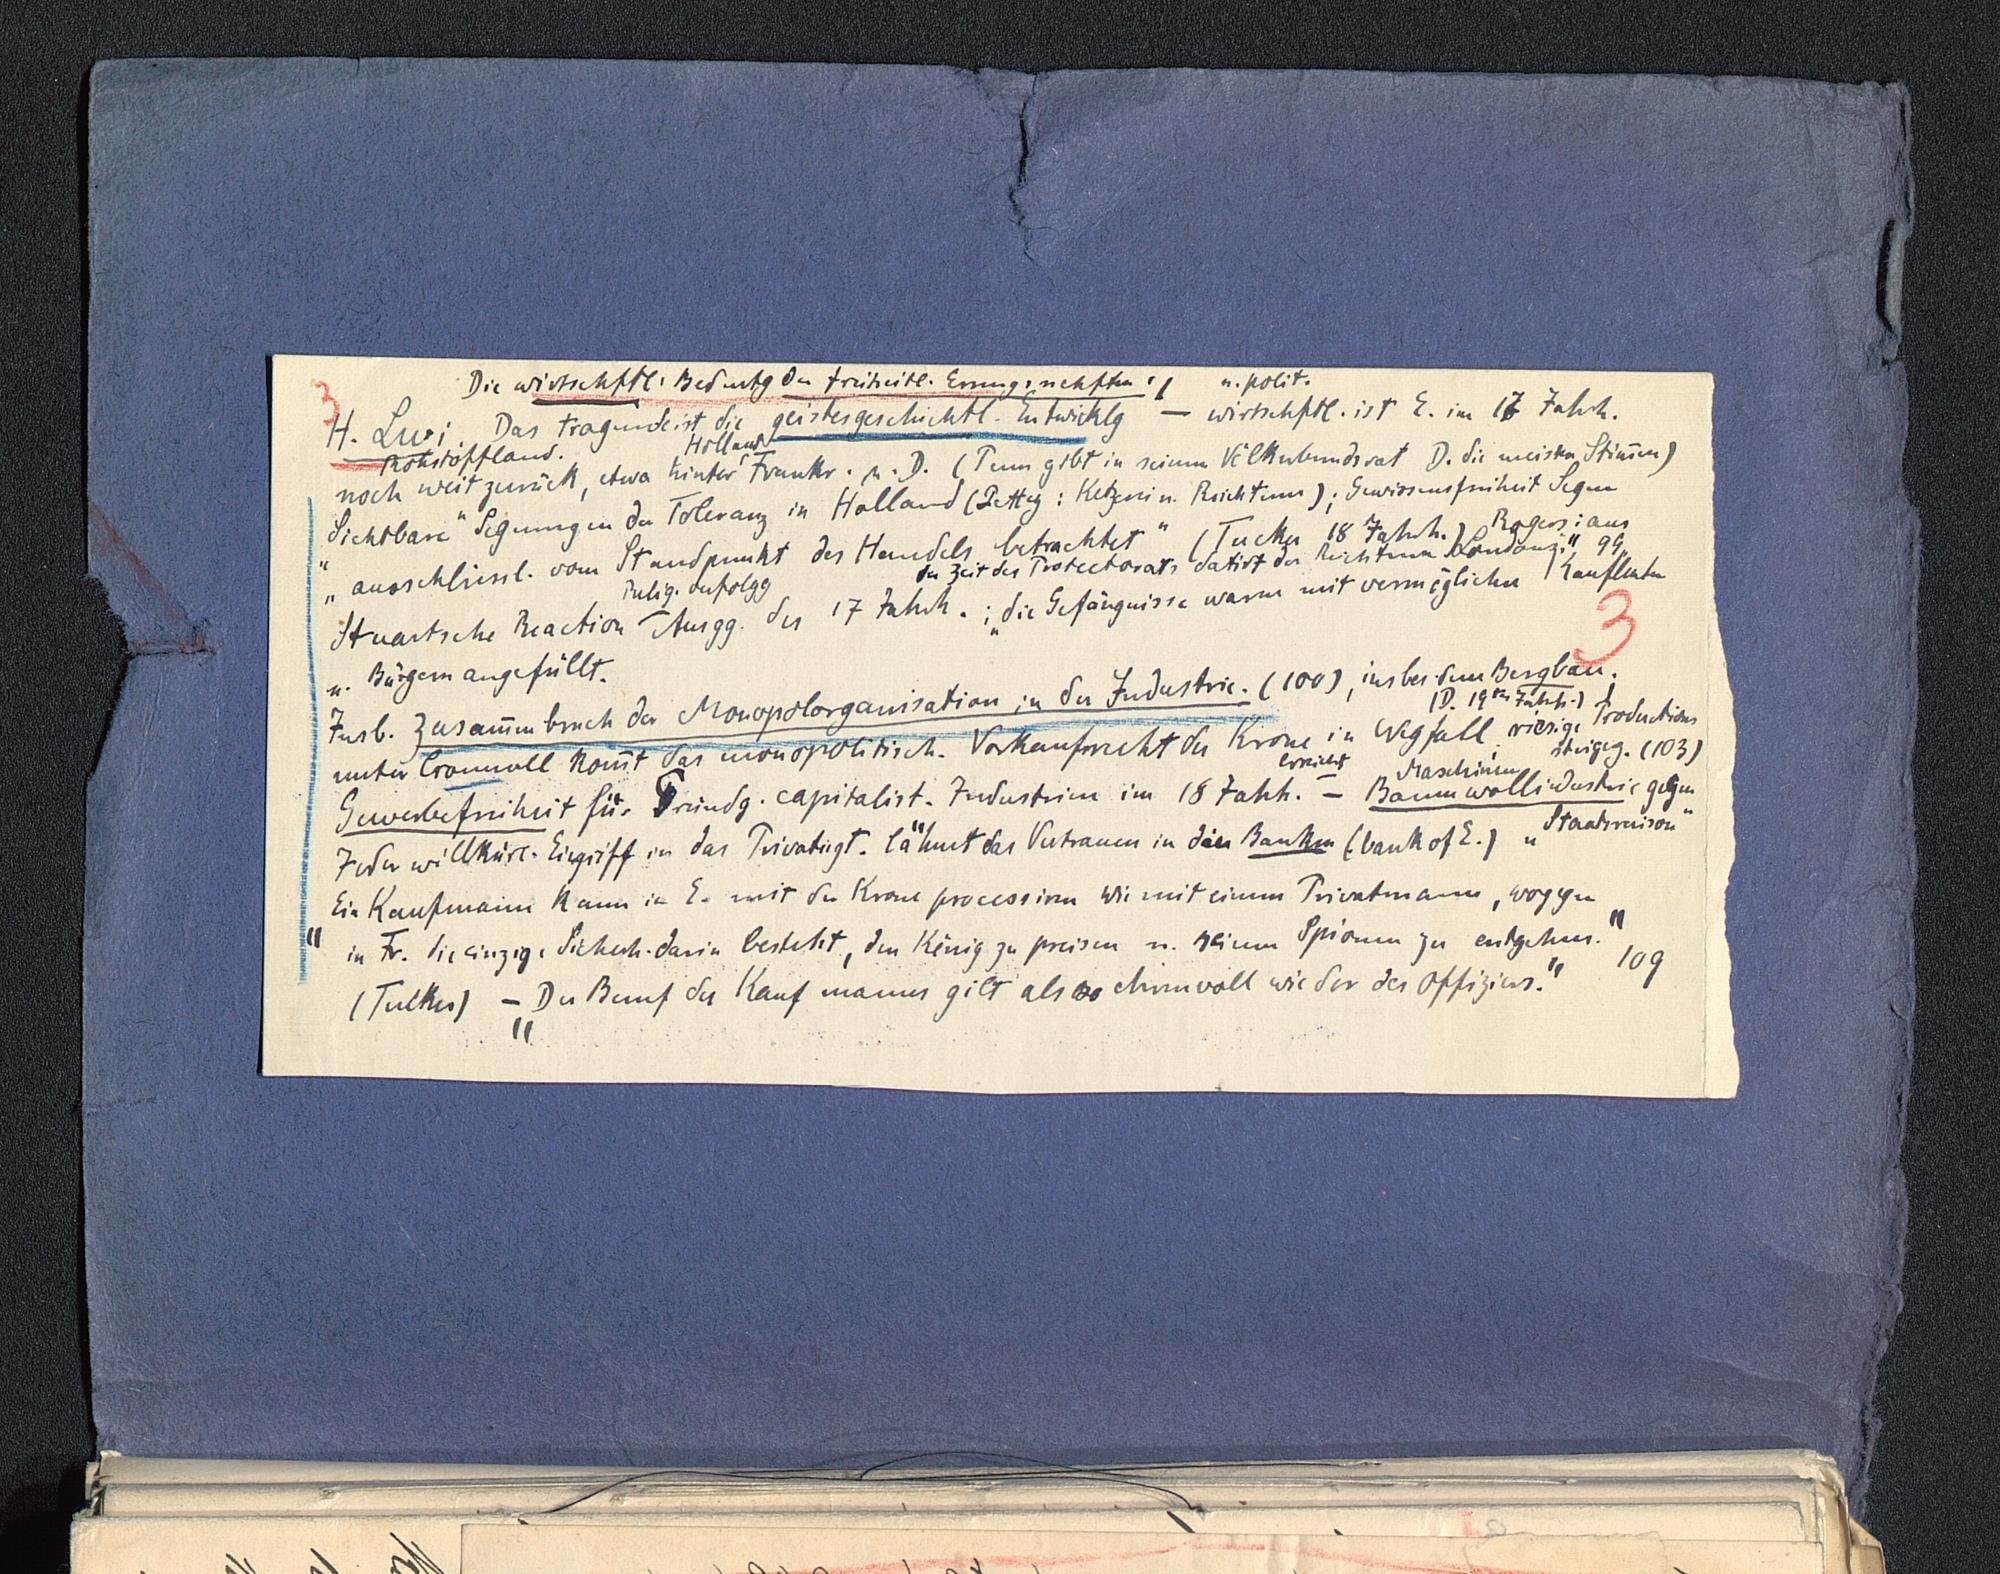 Die wirtschftl. Bedeutg der freiheitl. Errungenschften.
u. polit.
3
H. Levi. Das Tragende ist die geistesgeschichtl. Entwicklg — wirtschftl. ist E. im 17 Jahrh.
Rohstoffland.
Holland
noch weit zurück, etwa hinter Frankr. u. D. (Penn gibt in seinem Völkerbundsrat D. die meisten Stimmen)
Sichtbare "Segnungen der Toleranz in Holland (Petty: Ketzerei u. Reichtum); Gewissensfreiheit Segen
„ ausschliessl. vom Standpunkt des Handels betrachtet" (Tucker 18 Jahrh.) Rogers: aus
der Zeit des Protectorats datirt der Reichtum Londons" 99
Relig. verfolgg
Stuartsche Reaction Ausgg. des 17 Jahrh.; „die Gefängnisse waren mit vermöglichen Kaufleuten
3
u. Bürgern angefüllt.
Insb. Zusammenbruch der Monopolorganisation in der Industrie. (100), insbes. dem Bergbau.
(D. 19ten Jahrh.)
unter Cromwell kommt das monopolitisch. Vorkaufsrecht der Krone in Wegfall riesige Productions
steigeg. (103)
erreicht
Maschinen
Gewerbefreiheit für Gründg. capitalist. Industrien im 18 Jahh. — Baumwollindustrie gegen
„Staatsraison"
Jeder willkürl. Eingriff in das Privateigt. lähmt das Vertrauen in den Banken (bank of E.)
Ein Kaufmann kann in E. mit der Krone processiren wie mit einem Privatmann, wogegen
" in Fr. die einzige Sicherh. darin besteht, den König zu preisen u. seinen Spionen zu entgehen."
109
(Tucker) — „Der Beruf des Kaufmannes gilt als so ehrenvoll wie der des Offiziers."